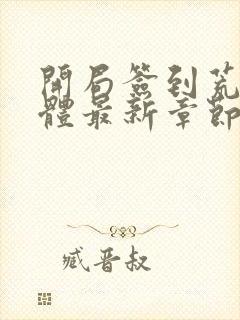 開局簽到荒
體最新章節
臧晋叔